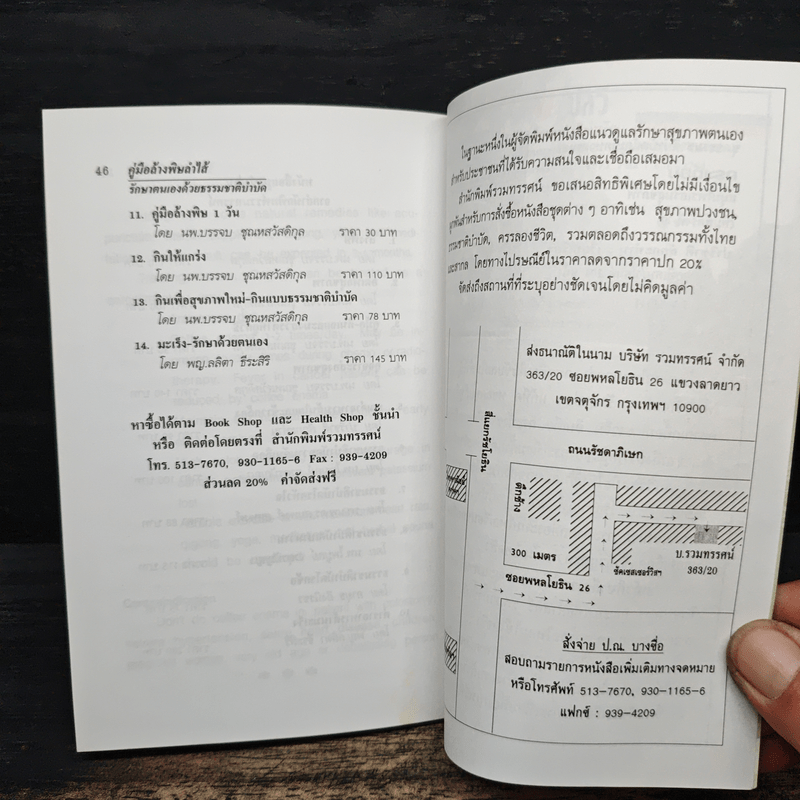 46 คู่มือล้างพิษลำไส้
รักษาตนเองด้วยธรรมชาติบำบัด
11. คู่มือล้างพิษ 1 วัน
โดย นพ.บรรจบ ชุณหสวัสดิกุล ราคา 30 บาท
12. กินให้แกร่ง
โดย นพ.บรรจบ ชุณหสวัสดิกุล ราคา 110 บาท
13. กินเพื่อสุขภาพใหม่-กินแบบธรรมชาติบำบัด
โดย นพ.บรรจบ ชุณหสวัสดิกุล ราคา 78 บาท
14. มะเร็ง-รักษาด้วยตนเอง
โดย พญ.ลลิตา ธีระสิริ ราคา 145 บาท
หาซื้อได้ตาม Book Shop และ Health Shop ชั้นนำ
หรือ ติดต่อโดยตรงที่ สำนักพิมพ์รวมทรรศน์
โทร. 513-7670, 930-1165-6 Fax : 939-4209
ส่วนลด 20% ค่าจัดส่งฟรี
ในฐานะหนึ่งในผู้จัดพิมพ์หนังสือแนวดูแลรักษาสุขภาพตนเอง
สำหรับประชาชนที่ได้รับความสนใจและเชื่อถือเสมอมา
สำนักพิมพ์รวมทรรศน์ ขอเสนอสิทธิพิเศษโดยไม่มีเงื่อนไข
ผูกพันสำหรับการสั่งซื้อหนังสือชุดต่าง ๆ อาทิเช่น สุขภาพปวงชน,
ธรรมชาติบำบัด, ครรลองชีวิต, รวมตลอดถึงวรรณกรรมทั้งไทย
และสากล โดยทางไปรษณีย์ในราคาลดจากราคาปก 20%
จัดส่งถึงสถานที่ที่ระบุอย่างชัดเจนโดยไม่คิดมูลค่า
ส่งธนาณัติในนาม บริษัท รวมทรรศน์ จำกัด
363/20 ซอยพหลโยธิน 26 แขวงลาดยาว
เขตจตุจักร กรุงเทพฯ 10900
สี่แยกรัชโยธิน
ถนนรัชดาภิเษก
ตึกช้าง
300 เมตร
บ.รวมทรรศน์
363/20
ซอยพหลโยธิน 26
สั่งจ่าย ป.ณ. บางซื่อ
สอบถามรายการหนังสือเพิ่มเติมทางจดหมาย
หรือโทรศัพท์ 513-7670, 930-1165-6
แฟกซ์ : 939-4209